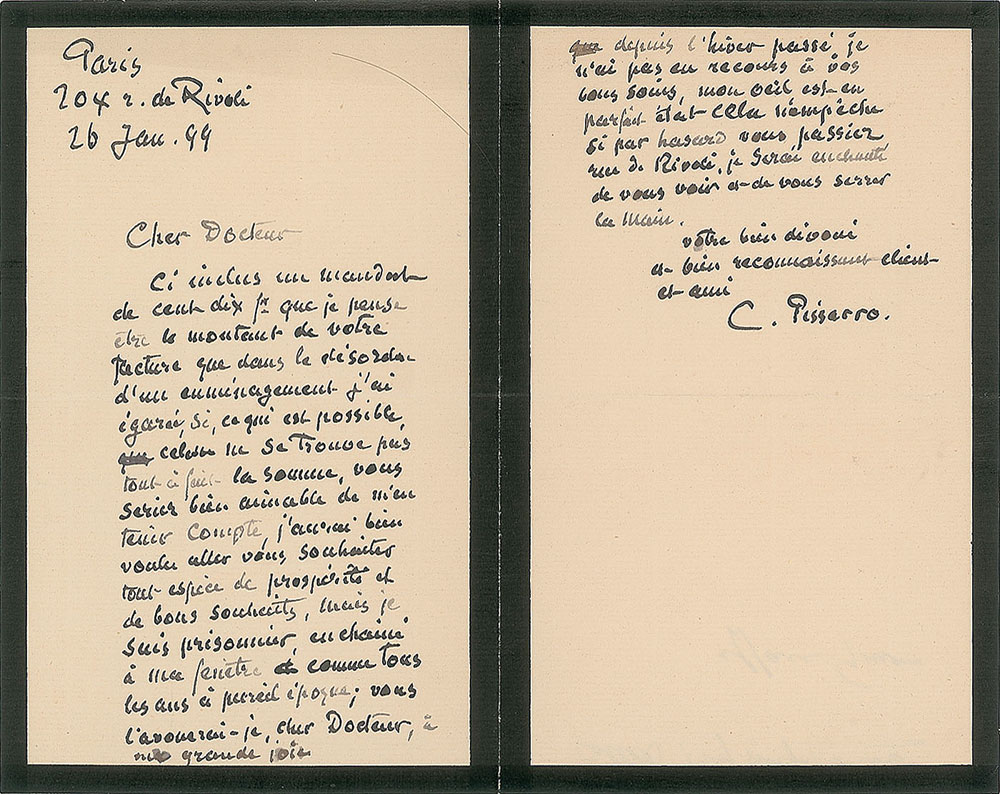 Paris
204 r. de Rivoli
26 Jan. 99
Cher Docteur
Ci inclus un mandat
de cent dix frs que je pense
être le montant de votre
facture que dans le désordre
d'un emménagement j'ai
égaré, Si, ce qui est possible,
celui ne se trouve pas
tout à fait la somme, vous
seriez bien aimable de m'en
tenir compte, j'aurai bien
voulu aller vous souhaiter
tout espèce de prospérité et
de bons souhaits, mais je
suis prisonnier, enchainé
à ma fenêtre comme tous
les ans à pareil époque; vous
l'avouerai-je, cher Docteur, à
ma grande joie
que depuis l'hiver passé je
n'ai pas eu recours à vos
bons soins, mon oeil est en
parfait état cela n'empêche
si par hasard vous passiez
rue de Rivoli, je serai enchanté
de vous voir et de vous serrer
la main.
votre bien dévoué
et bien reconnaissant client
et ami
C. Pissarro.